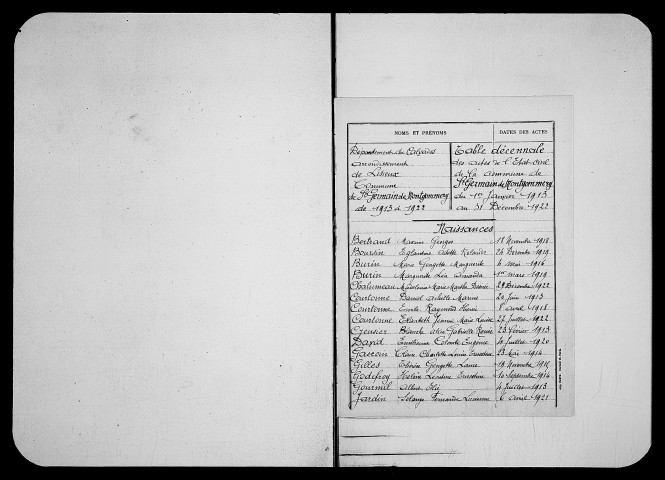 NOMS ET PRÉNOMS DATES DES ACTES
Département du Calvados
arrondissement
de Lisieux
Commune
de St Germain de Montgommery
de 1913 à 1922
Table décennale
des actes de l'Etat civil
de la commune de
St Germain de Montgommery
du 1er Janvier 1913
au 31 Décembre 1922
Naissances
Bertrand Georges 18 Novembre 1918
Boursin Eglantine Odette 24 Décembre 1919
Burin Marie Georgette Marguerite 6 mai 1916
Burin Marguerite Léa 1er mars 1919
Chalumeau Madeleine Marie Marthe 29 Décembre 1922
Courtonne Daniel Marius Juin 1913
Courtonne Emile Raymond Henri 8 avril 1918
Courtonne Elisabeth Jeanne Marie Louise 22 Juillet 1922
Blanche Alice Gabrielle Renée 23 février 1913
David Colombe Eugénie Juillet 1920
Gascoin Charlotte Louise Ernestine 23 Mai 1914
Gilles Georgette Laure 19 Novembre
Godefroy Hélène Ernestine 10 Septembre 1914
Albert 4 Juillet 1913
Jardin Solange Fernande Lucienne 6 Avril 1921